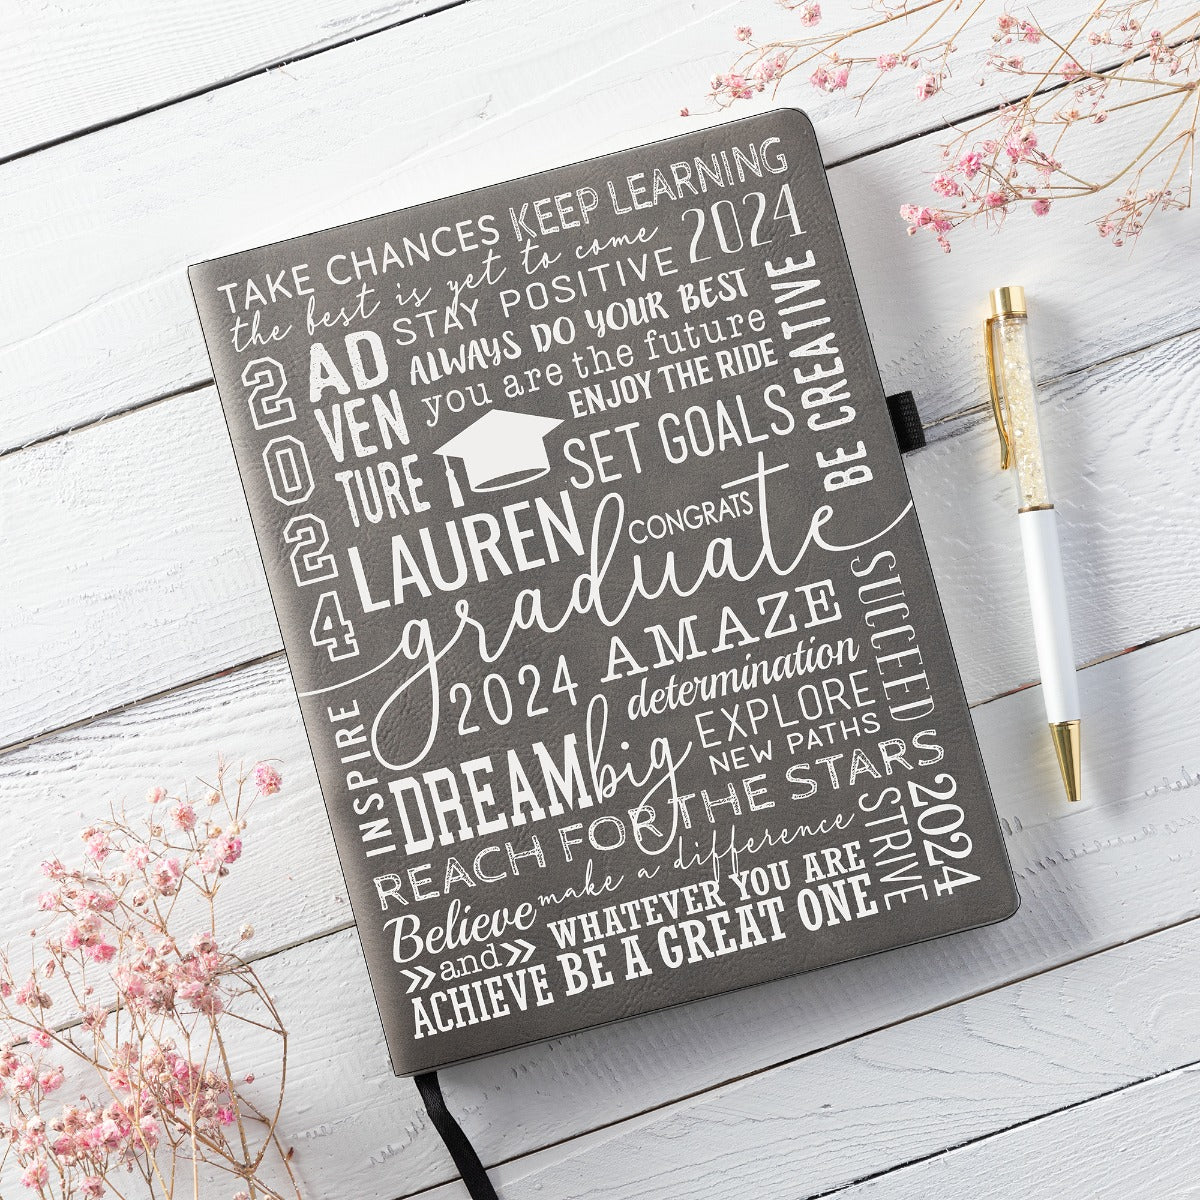 TAKE CHANCES KEEP LEARNING
the best is yet to come 2024
STAY POSITIVE
ALWAYS DO YOUR BEST
you are the future
ENJOY THE RIDE
BE CREATIVE
2024
AD
VEN
TURE
SET GOALS
LAUREN
CONGRATS
graduate
2024 AMAZE
determination
SUCCEED
INSPIRE
DREAM big
EXPLORE
NEW PATHS
REACH FOR THE STARS
make a difference
STRIVE
2024
Believe
»and»
ACHIEVE
WHATEVER YOU ARE
BE A GREAT ONE